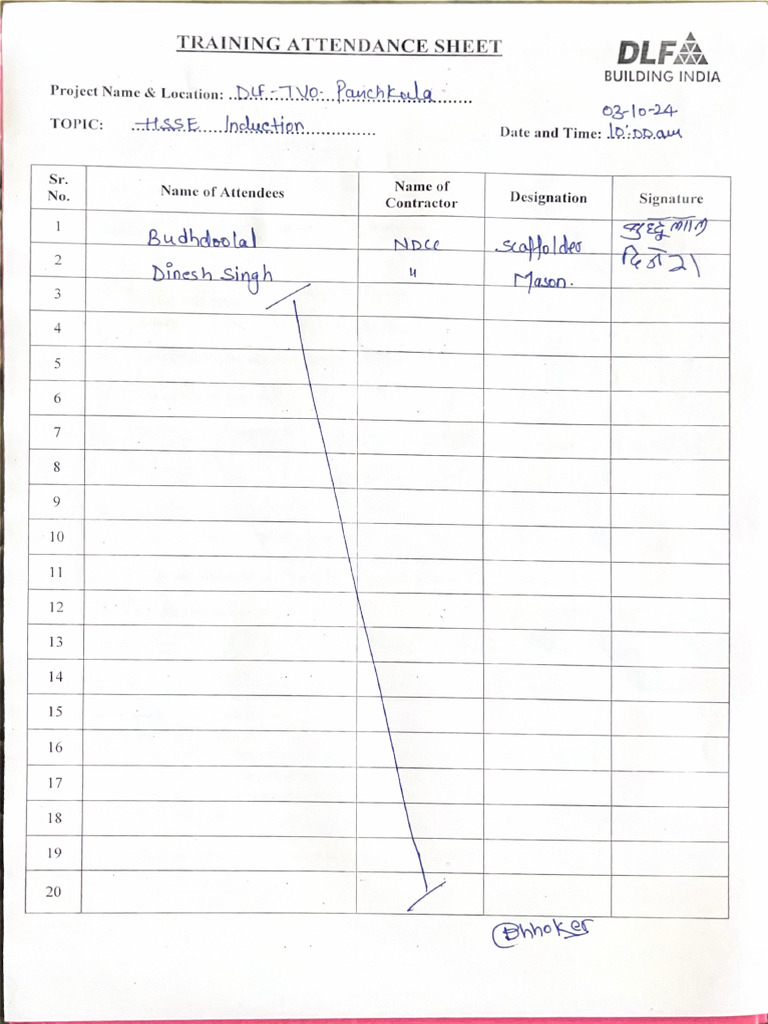 TRAINING ATTENDANCE SHEET
DLF
BUILDING INDIA
Project Name & Location: DLF-TVO- Panchkula
03-10-24
TOPIC: HSSE Induction
Date and Time: 10:00am
Sr. No. Name of Attendees Name of Contractor Designation Signature
1 Budhdoolal NDCC Scaffolder बुद्दू लाल
2 Dinesh Singh " Mason. दिनेश
3
4
5
6
7
8
9
10
11
12
13
14
15
16
17
18
19
20